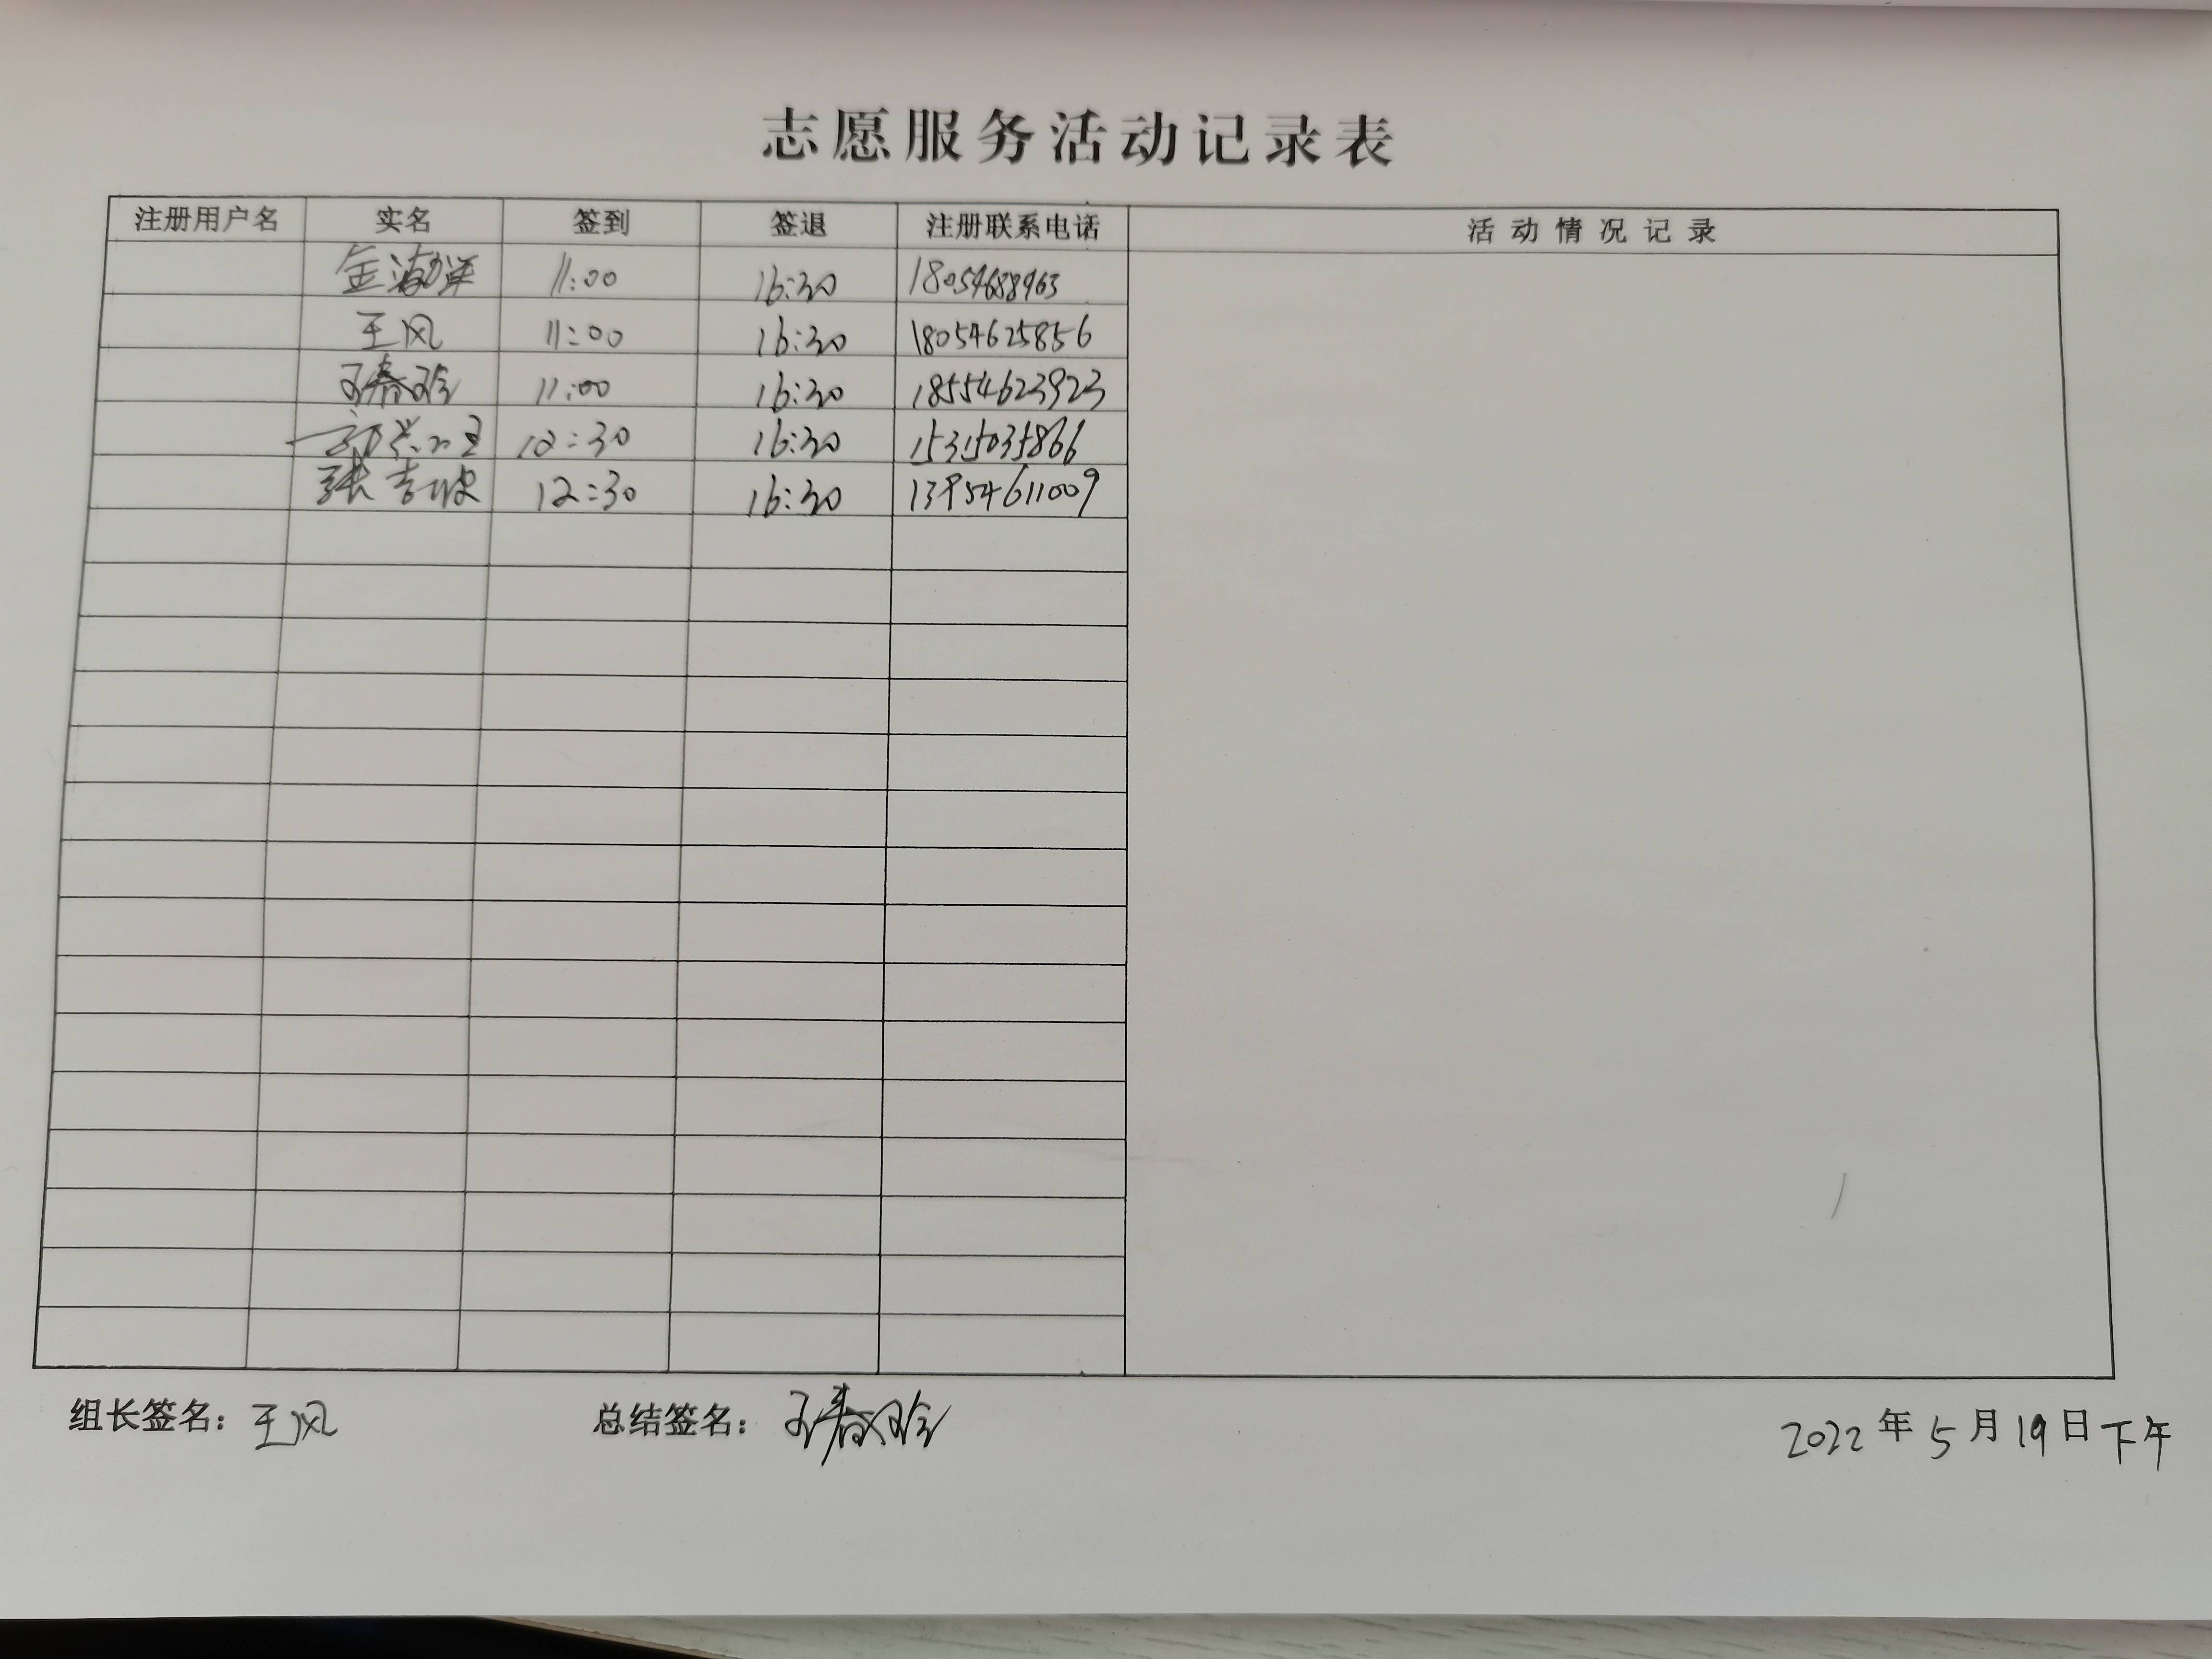 志愿服务活动记录表
注册用户名 实名 签到 签退 注册联系电话 活动情况记录
金渤洋 11:00 16:30 18054688963
王风 11:00 16:30 18054625856
春玲 11:00 16:30 18554623923
12:30 16:30 15315035866
张吉波 12:30 16:30 13954611009
组长签名：王风 总结签名：春玲 2022年5月19日下午